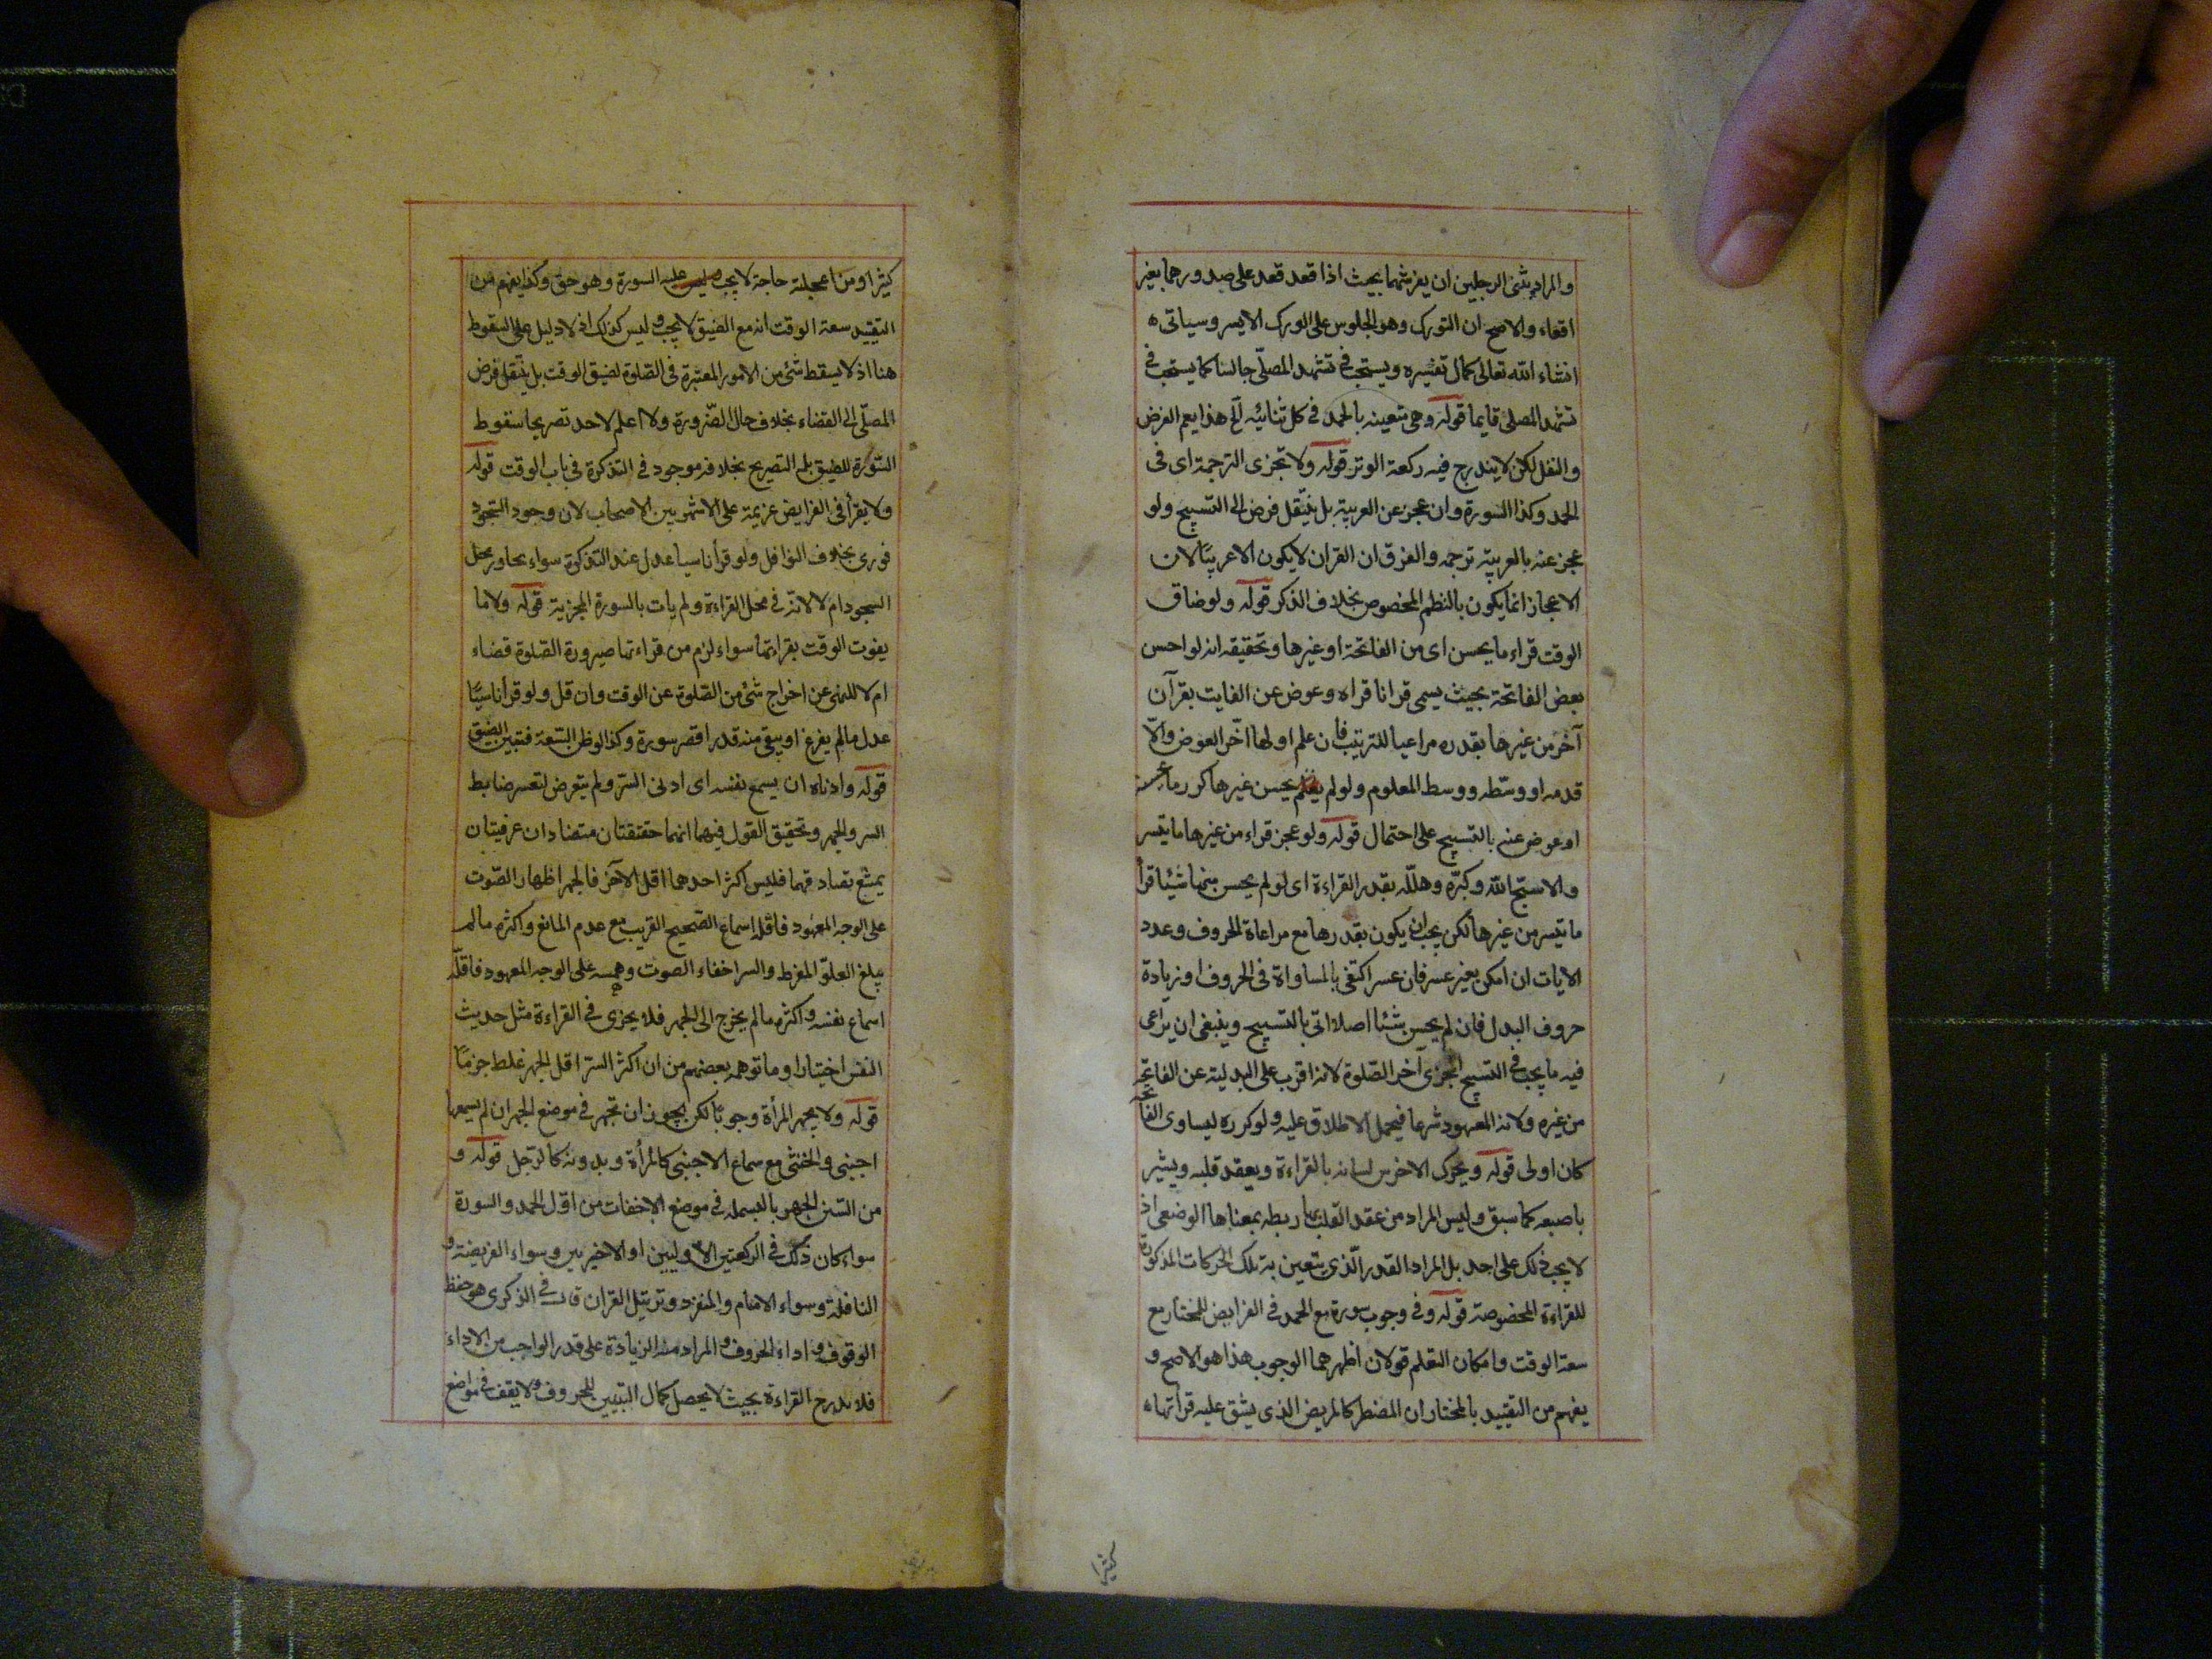 والمراد بثنى الرجلين ان يفرشهما بحيث اذا قعد قعد على صدورهما بغير
اقعاء والاصح ان التورك وهو الجلوس على الورك الايسر وسياتى
انشاء الله تعالى كمال تفسيره ويستحب في تشهد المصلّى جالسا كما يستحب في
تشهد المصلى قايما قوله وهى متعينه بالحمد في كل ثنائيه آلخ هذا يعم الفرض
والنفل لكن لا يندرج فيه ركعة الوتر قوله ولا تجزى الترجمة اى فى
الحمد وكذا السورة وان عجز عن العربية بل ينتقل فرض الى التسبيح ولو
عجز عنه بالعربية ترجمه والفرق ان القران لا يكون الا عربيّا لان
الاعجاز انما يكون بالنظم المخصوص بخلاف الذكر قوله ولو ضاق
الوقت قراء ما يحسن اى من الفاتحة او غيرها وتحقيقه انه لو احسن
بعض الفاتحة بحيث يسمى قرانا قراه وعوض عن الفايت بقرآن
آخر من غيرها بقدره مراعيا للترتيب فان علم اولها اخّر العوض والّا
قدمه او وسّطه ووسط المعلوم ولو لم يحسن غيرها كرر ما يحسن
او عوض عنه بالتسبيح على احتمال قوله ولو عجز قراء من غيرها ما تيسر
والا سبّح الله وكبّره وهلّله بقدر القراءة اى لو لم يحسن منها شيئا قرأ
ما تيسر من غيرها لكن يجب ان يكون بقدرها مع مراعاة الحروف وعدد
الايات ان امكن بغير عسر فان عسر اكتفى بالمساواة فى الحروف او زيادة
حروف البدل فان لم يحسن شئا اصلا اتى بالتسبيح وينبغى ان يراعى
فيه ما يجب في التسبيح المجزى آخر الصّلوة لانه اقرب على البدلية عن الفاتحة
من غيره ولانه المعهود شرعا فيحمل الاطلاق عليه ولو كرره ليساوى الفاتحة
كان اولى قوله ويحرك الاخرس لسانه بالقراءة ويعقد قلبه ويشير
باصبعه كما سبق وليس المراد من عقد القلب بها ربطه بمعناها الوضعى اذ
لا يجب ذلك على احد بل المراد القدر الّذى يتعين به تلك الحركات المذكورة
للقراءة المخصوصة قوله وفى وجوب سورة مع الحمد فى الفرايض للمختار مع
سعة الوقت وامكان التعلم قولان اظهرهما الوجوب هذا هو الاصح و
يفهم من التقييد بالمختار ان المضطر كالمريض الذى يشق عليه قرأتها
كثيرا
كثيرا او من اعجلته حاجة لا يجب عليه السورة وهو حق وكذا يفهم من
التقييد سعة الوقت انه مع الضيق لا يجب وليس كذلك اذ لا دليل على السقوط
هنا اذ لا يسقط شئ من الامور المعتبرة فى الصّلوة لضيق الوقت بل ينتقل فرض
المصلّى الى القضاء بخلاف حال الضّرورة ولا اعلم لاحد تصريحا بسقوط
السّورة للضيق بلم التصريح بخلافه موجود فى التذكرة في باب الوقت قوله
ولا يقرأ فى الفرايض عزيمة على الاشهر بين الاصحاب لان وجود السّجود
فورى بخلاف النوافل ولو قرأ ناسيا عدل عند التذكرة سواء تجاوز محل
السجود ام لا لانّه في محل القراءة ولم يات بالسورة المجزية قوله ولا ما
يفوت الوقت بقراءتها سواء لزم من قراءتها صيرورة الصّلوة قضاء
ام لا للنهى عن اخراج شئ من الصّلوة عن الوقت وان قل ولو قرأ ناسيًا
عدل ما لم يفرغ او يبقى منه قدر اقصر سورة وكذا لو ظن السّعة فتبين الضّيق
قوله وادناه ان يسمع نفسه اى ادنى السّر ولم يتعرض لتعسر ضابط
السر والجهر وتحقيق القول فيهما انهما حقيقتان متضادان عرفيتان
يمتنع تصادقهما فليس اكثر احدهما اقل الآخر فالجهر اظهار الصّوت
على الوجه المعهود فاقلّه اسماع الصّحيح القريب مع عدم المانع واكثره ما لم
يبلغ العلوّ المفرط والسر اخفاء الصوت وهمسه على الوجه المعهود فاقلّه
اسماع نفسه واكثره ما لم يخرج الى الجهر فلا يجزى في القراءة مثل حديث
النفس اختيارا وما توهمه بعضهم من ان اكثر السّر اقل الجهر غلط جزمًا
قوله ولا يجهر المرأة وجوبًا لكن يجوز ان تجهر في موضع الجهر ان لم يسمعها
اجنبى والخنثى مع سماع الاجنبى كالمرأة وبدونه كالرّجل قوله و
من السّنن الجهر بالبسملة في موضع الاخفات من اوّل الحمد والسورة
سواء كان ذلك في الركعتين الاوليين او الاخيرتين وسواء الفريضة و
النافلة وسواء الامام والمنفرد وترتيل القران قال في الذكرى هو حفظ
الوقوف واداء الحروف والمراد منه الزيادة على قدر الواجب من الاداء
فلا يدرج القراءة بحيث لا يحصل كمال التبيين للحروف ولا يقف في مواضع